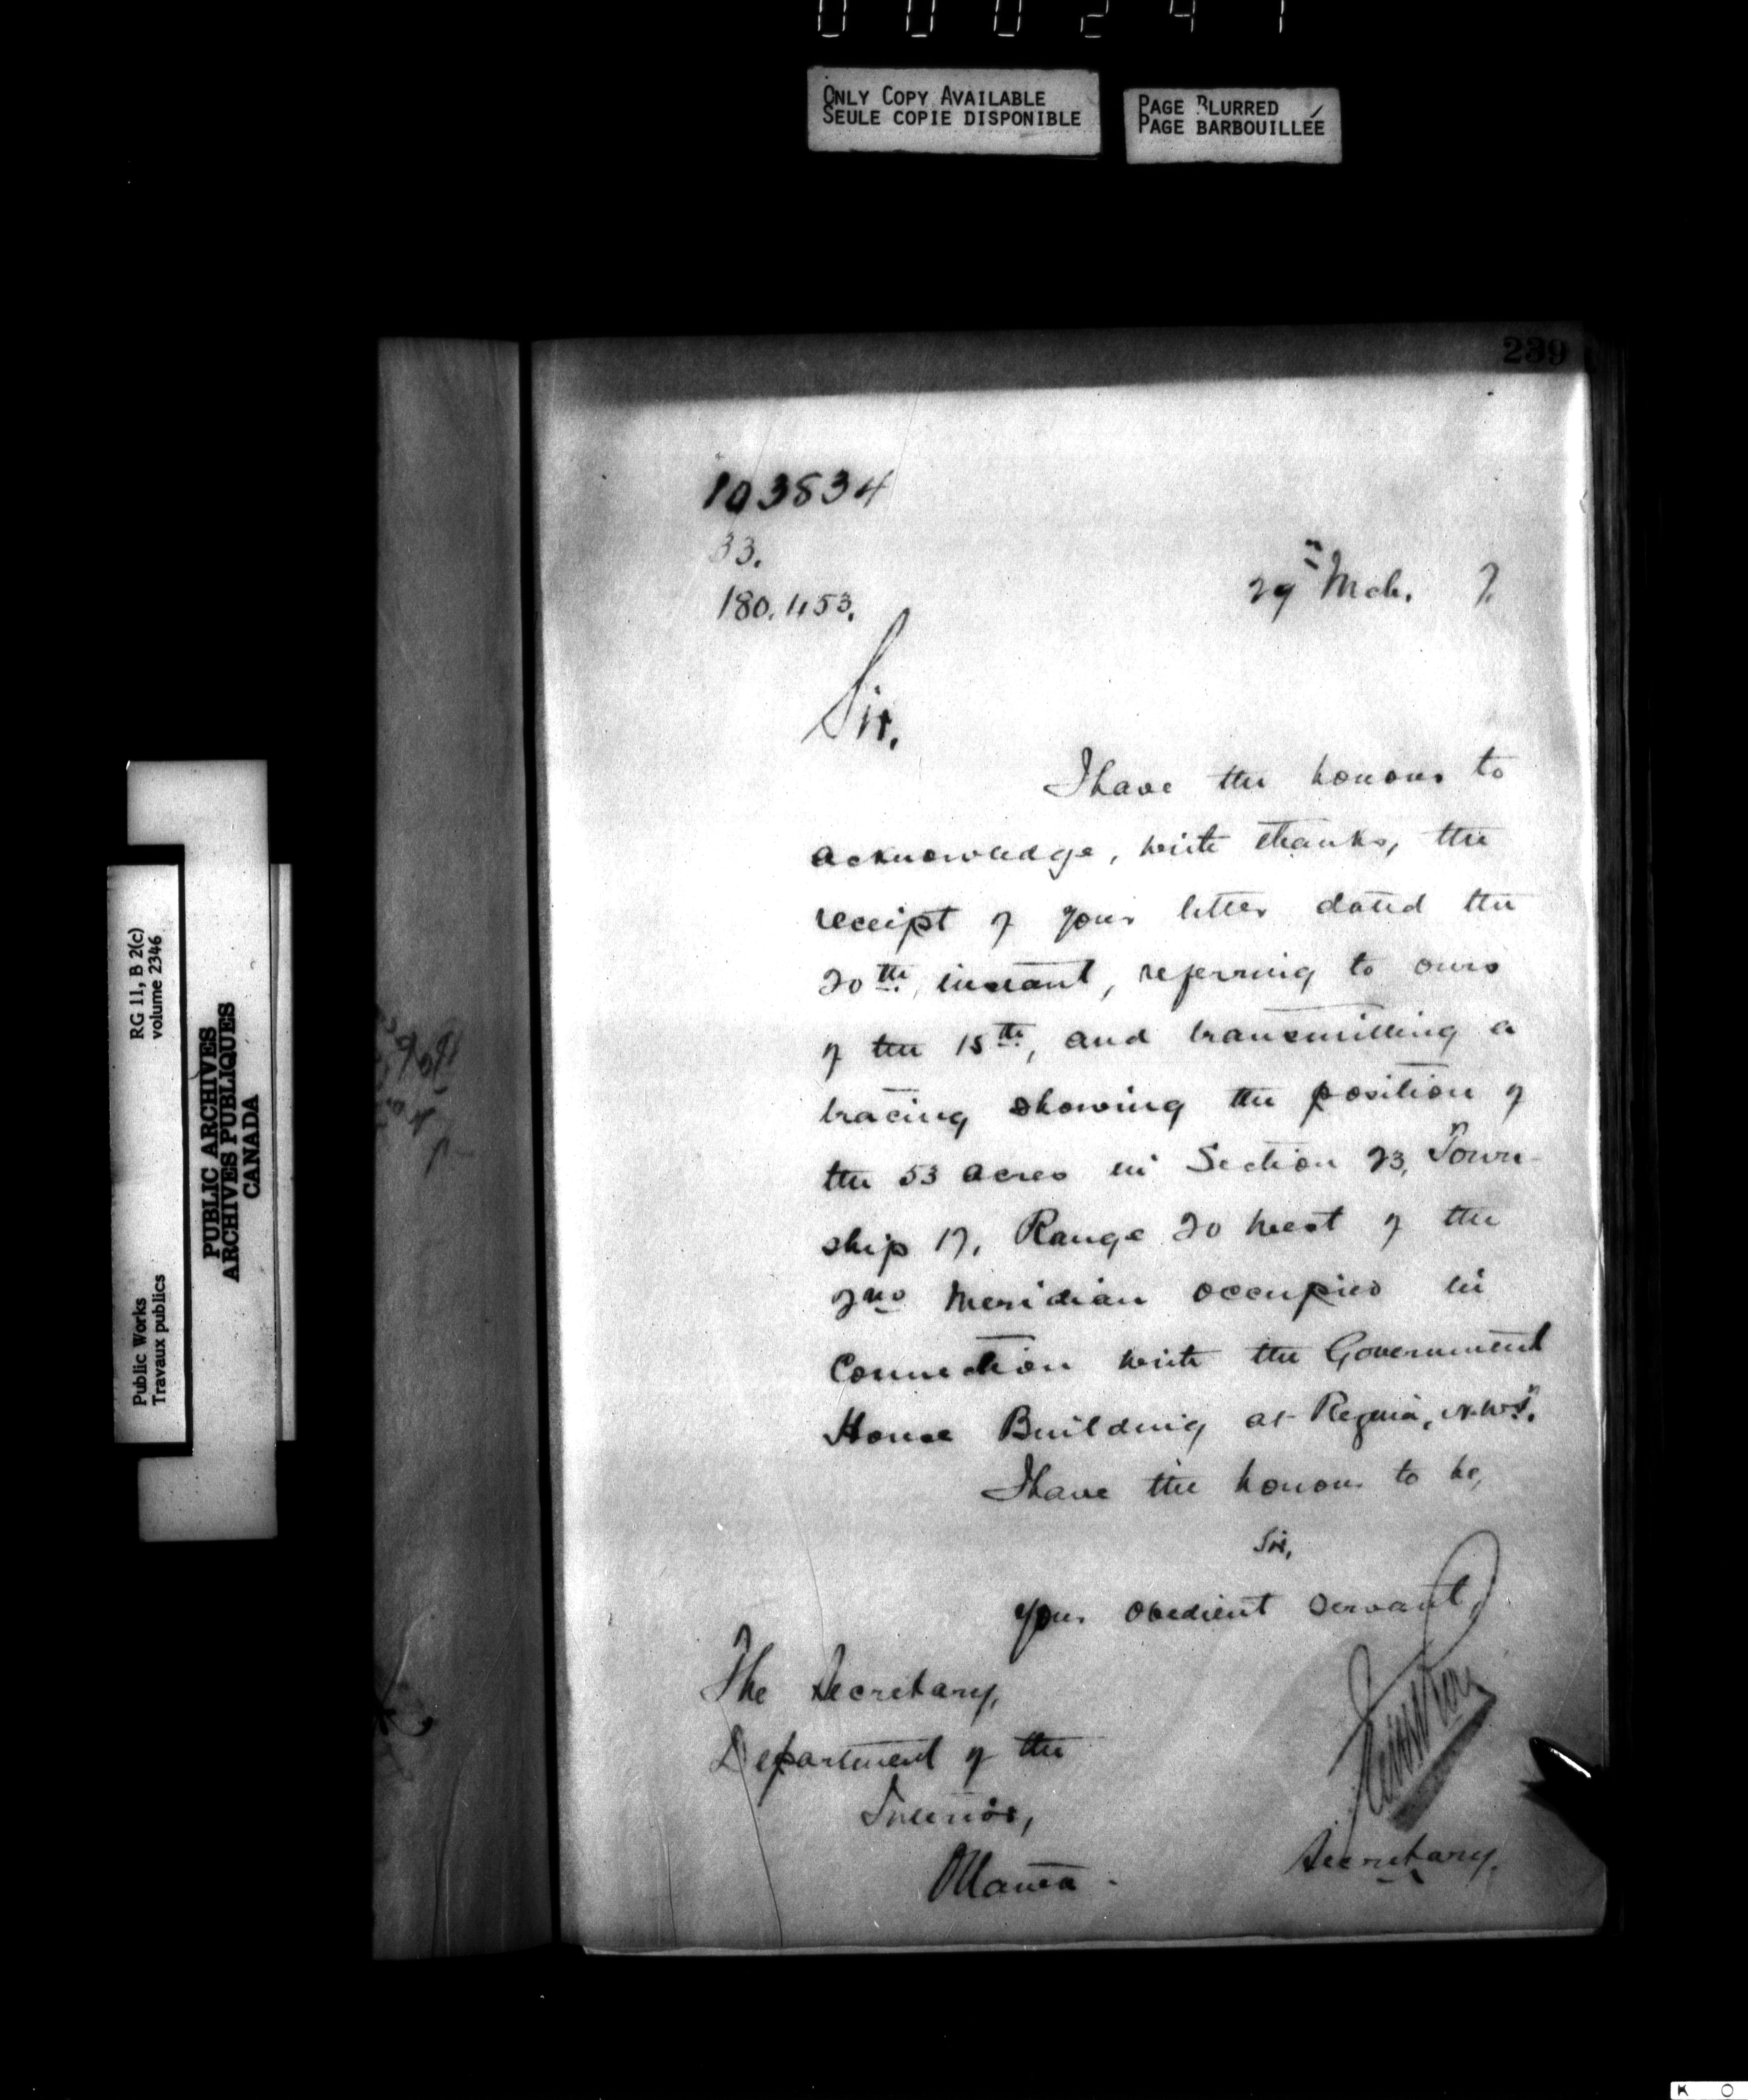 000241
ONLY COPY AVAILABLE
SEULE COPIE DISPONIBLE
PAGE BLURRED
PAGE BARBOUILLÉE
239
103834
33.
180.453.
29th Mch. 7.
Sir,
I have the honour to
acknowledge, with thanks, the
receipt of your letter dated the
20th instant, referring to ours
of the 15th, and transmitting a
tracing showing the position of
the 53 acres in Section 23, Town-
ship 17, Range 20 West of the
2nd Meridian occupied in
Connection with the Government
House Building at Regina, N.W.T.
I have the honour to be,
Sir,
Your obedient servant,
Secretary.
The Secretary,
Department of the
Interior,
Ottawa.
RG 11, B 2(c)
volume 2346
Public Works
Travaux publics
PUBLIC ARCHIVES
ARCHIVES PUBLIQUES
CANADA
K O